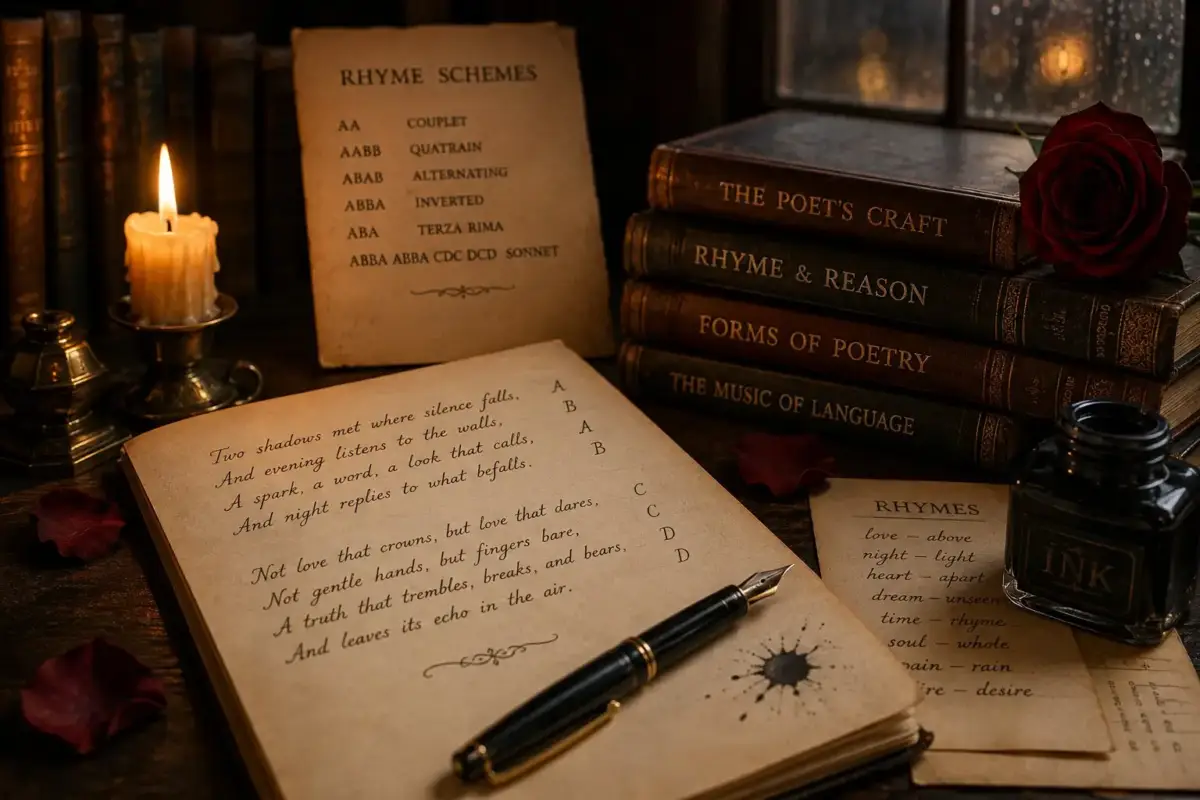 RHYME SCHEMES
AA COUPLET
AABB QUATRAIN
ABAB ALTERNATING
ABBA INVERTED
ABA TERZA RIMA
ABBA ABBA CDC DCD SONNET
THE POET'S CRAFT
RHYME & REASON
FORMS OF POETRY
THE MUSIC OF LANGUAGE
Two shadows met where silence falls, A
And evening listens to the walls, B
A spark, a word, a look that calls, A
And night replies to what befalls. B
Not love that crowns, but love that dares, C
Not gentle hands, but fingers bare, C
A truth that trembles, breaks, and bears, D
And leaves its echo in the air. D
RHYMES
love – above
night – light
heart – apart
dream – unseen
time – rhyme
soul – whole
pain – rain
– desire
INK